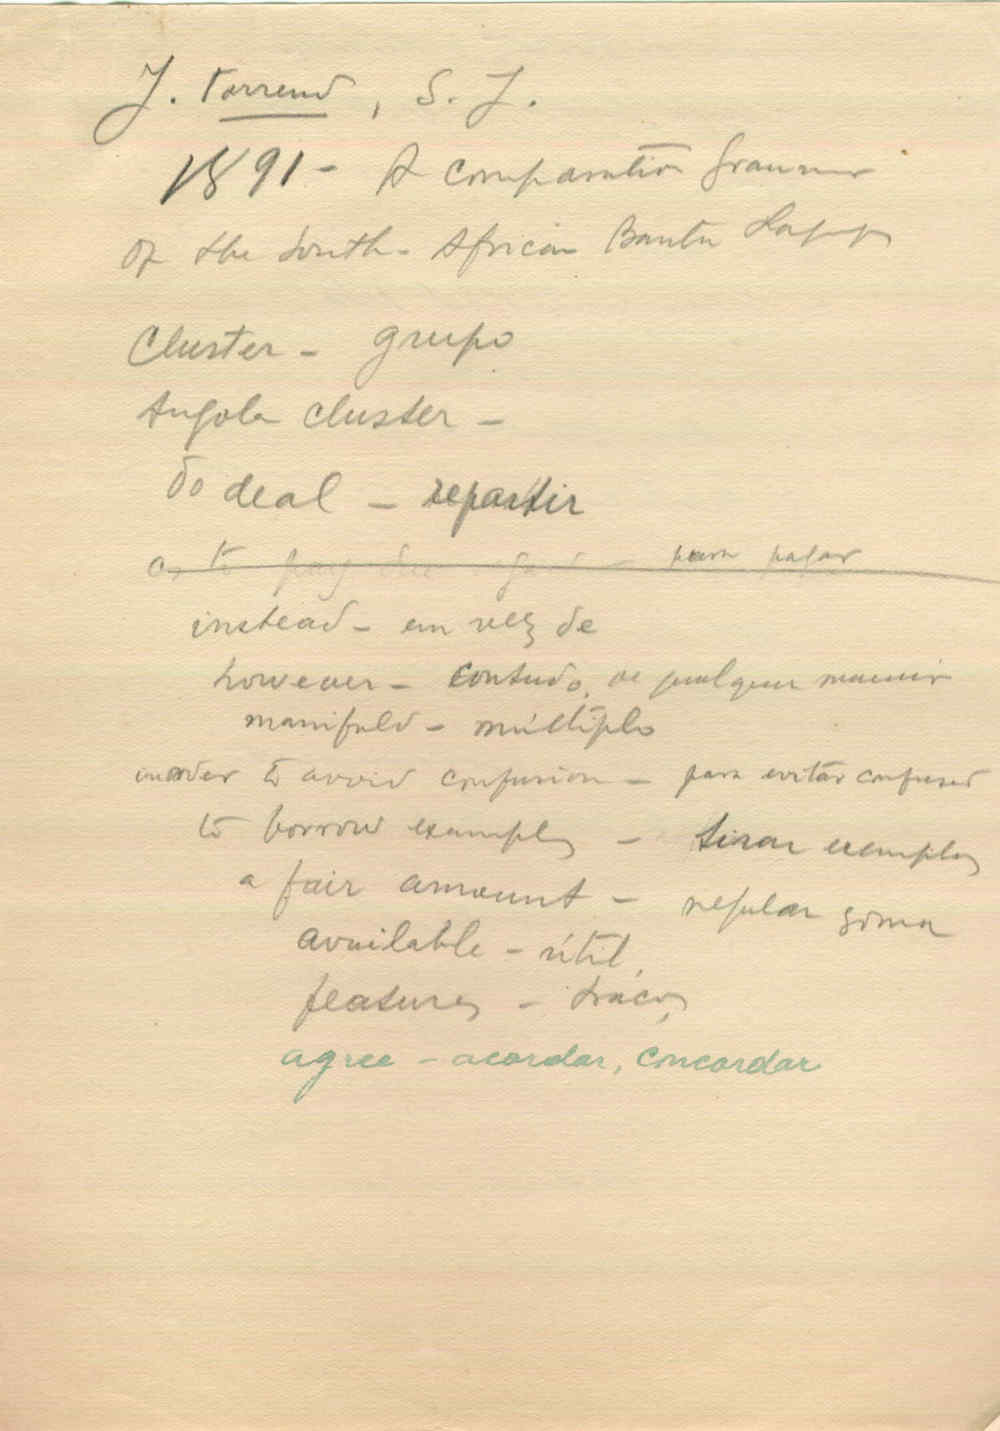 J. Torrend, S. J.
1891 - A Comparative Grammar
of the South-African Bantu
Cluster - grupo
Angola cluster -
To deal - repartir
as to pay - para pagar
instead - em vez de
however - contudo, de qualquer maneira
manifold - múltiplo
in order to avoid confusion - para evitar confusão
to borrow examples - tirar exemplos
a fair amount - regular soma
available - útil,
features - traços
agree - acordar, concordar